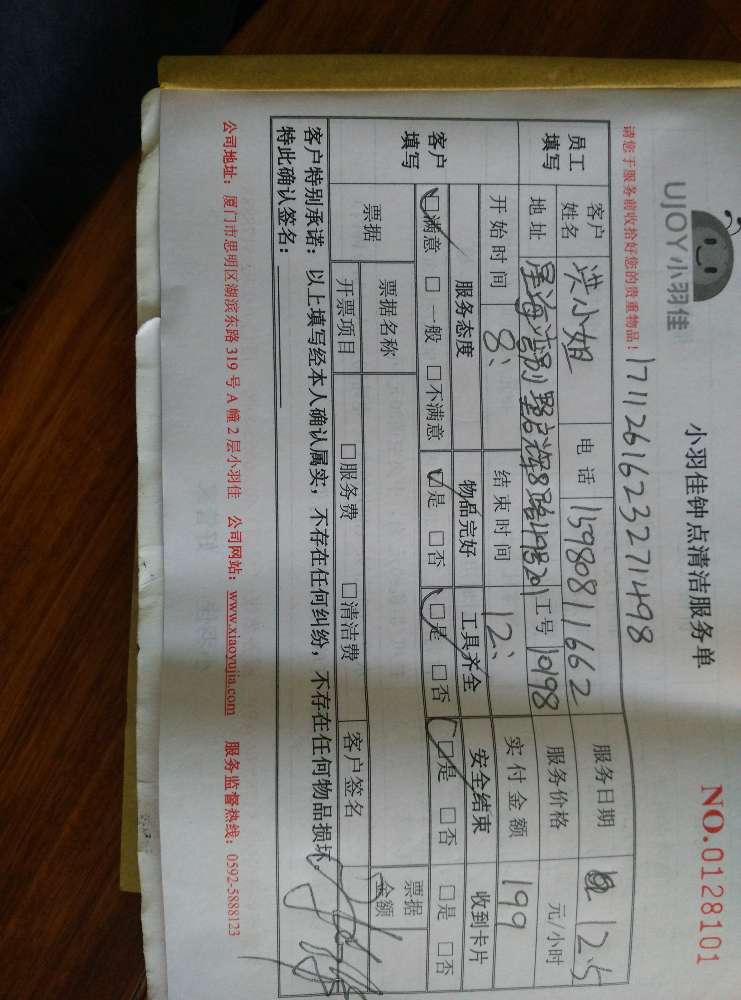 UJOY小羽佳
小羽佳钟点清洁服务单
NO.0128101
请您于服务前收拾好您的贵重物品！
171126162327 1498
员工填写 客户姓名 洪小姐 电话 15980811662 服务日期 12.5
地址 星海湾别墅 8路 201 工号 10198 服务价格 元/小时
开始时间 8: 结束时间 12: 实付金额 199
客户填写 服务态度 物品完好 工具齐全 安全结束 收到卡片
☑满意 □一般 □不满意 ☑是 □否 ☑是 □否 ☑是 □否 □是 □否
票据 票据名称 票据金额
开票项目 □服务费 □清洁费 客户签名
客户特别承诺：以上填写经本人确认属实，不存在任何纠纷，不存在任何物品损坏。
特此确认签名：
公司地址：厦门市思明区湖滨东路 319 号 A 幢 2 层小羽佳 公司网站：www.xiaoyujia.com 服务监督热线：0592-5888123